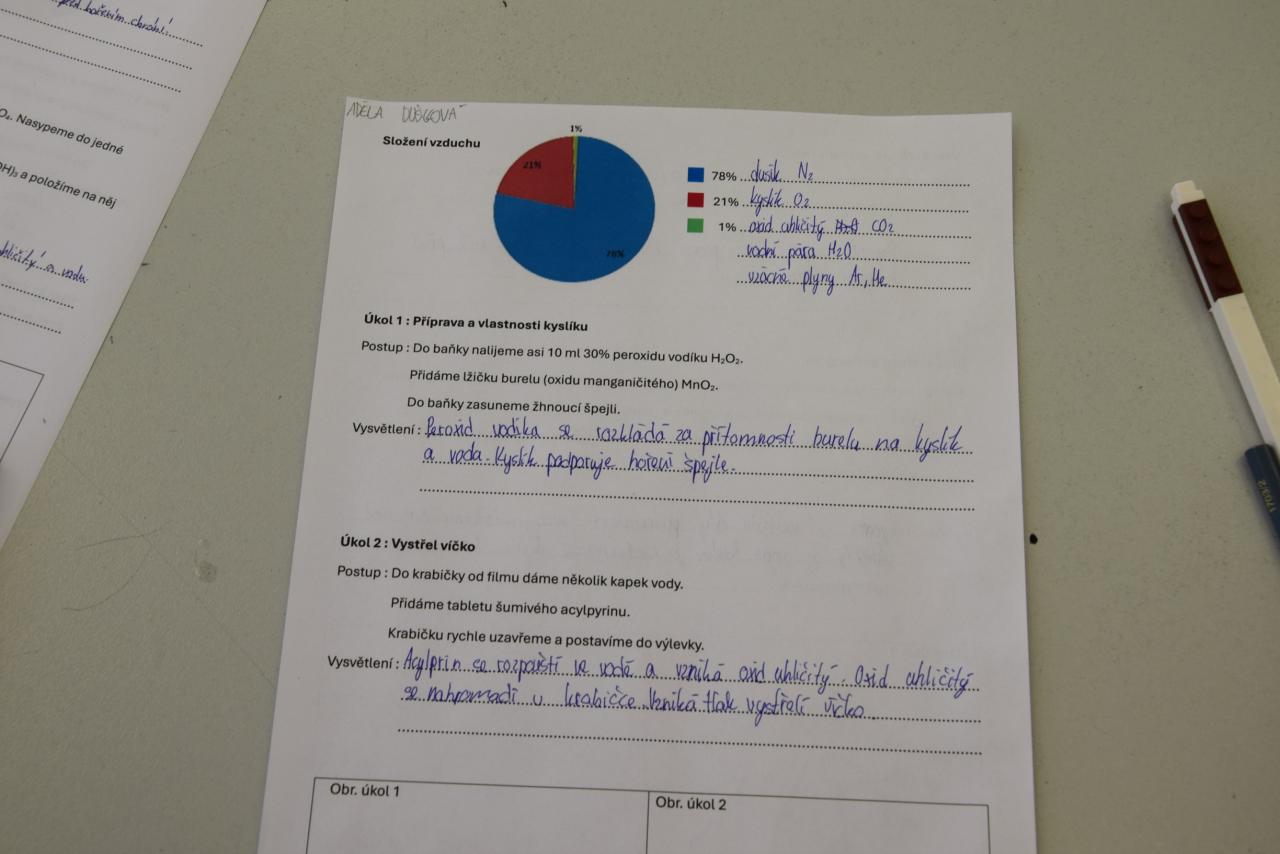 před hořením chrání!
O₄. Nasypeme do jedné
OH)₃ a položíme na něj
uhličitý a vodu
ADÉLA DUŠKOVÁ
Složení vzduchu
1%
21%
78%
78% dusík N₂
21% kyslík O₂
1% oxid uhličitý CO₂
vodní pára H₂O
vzácné plyny Ar, He
Úkol 1 : Příprava a vlastnosti kyslíku
Postup : Do baňky nalijeme asi 10 ml 30% peroxidu vodíku H₂O₂.
Přidáme lžičku burelu (oxidu manganičitého) MnO₂.
Do baňky zasuneme žhnoucí špejli.
Vysvětlení : Peroxid vodíka se rozkládá za přítomnosti burelu na kyslík
a voda. Kyslík podporuje hoření špejle.
Úkol 2 : Vystřel víčko
Postup : Do krabičky od filmu dáme několik kapek vody.
Přidáme tabletu šumivého acylpyrinu.
Krabičku rychle uzavřeme a postavíme do výlevky.
Vysvětlení : Acylprin se rozpouští ve vodě a vzniká oxid uhličitý. Oxid uhličitý
se nahromadí v krabičce. Vzniká tlak vystřelí víčko.
Obr. úkol 1
Obr. úkol 2
1703/2